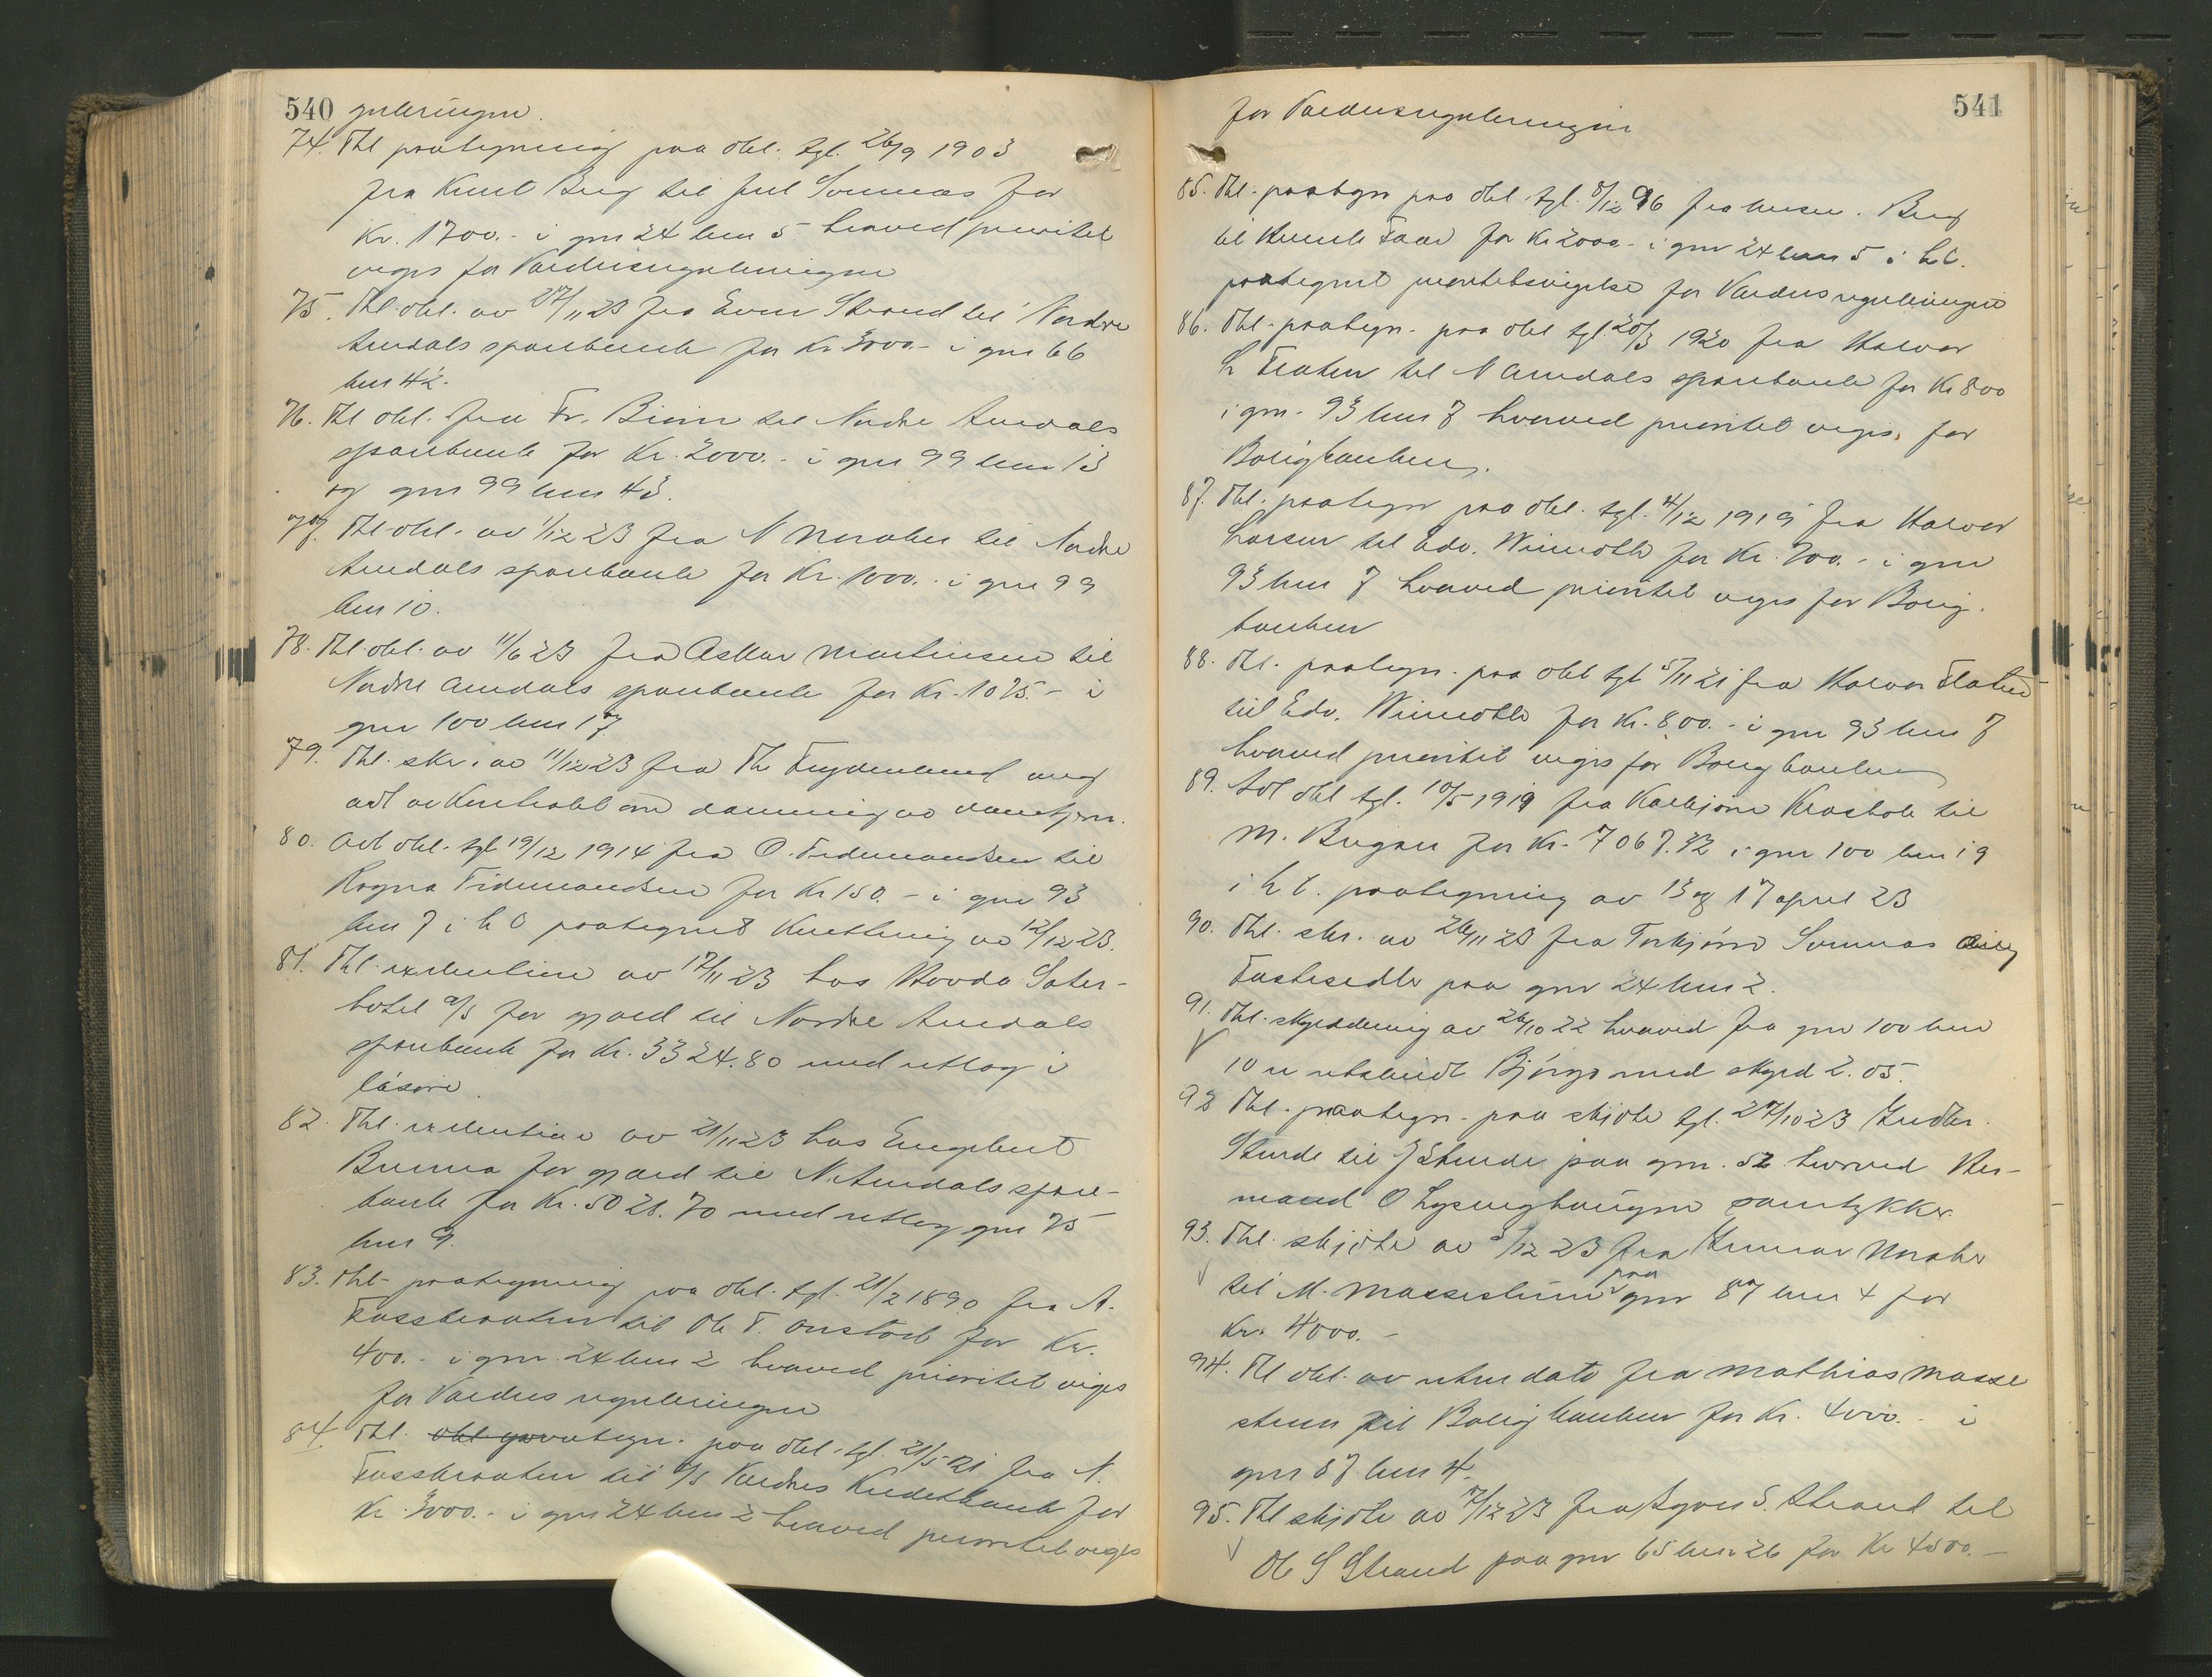 540 guleringen.
74. Thl paategning paa obl. tgl. 26/9 1903
fra Knut Berg til Juul Sonnæs for
Kr. 1700.- i gnr 24 bnr 5 hvorved prioritet
viges for Valdresreguleringen
75. Thl. obl. av 27/11 23 fra Even Strand til Nordre
Aurdals sparebank for Kr. 3000.- i gnr 66
bnr 42.
76. Thl obl. fra Fr. Biørn til Nordre Aurdals
sparebank for Kr. 2000.- i gnr 99 bnr 13
og gnr 99 bnr 43.
77. Thl obl. av 1/12 23 fra N Noraker til Nordre
Aurdals sparebank for Kr. 1000.- i gnr 99
bnr 10.
78. Thl obl. av 11/6 23 fra Askar Martinsen til
Nordre Aurdals sparebank for Kr. 1025.- i
gnr 100 bnr 17.
79. Thl. skr. av 11/12 23 fra Th Frydenlund ang
avl av Kontrakt om damming av
80. Avl obl. tgl 19/12 1914 fra O. Fidemandsen til
Ragna Fidemandsen for Kr 150.- i gnr 93
bnr 7 i h t paategnet Kvittering av 12/12 23.
81. Thl. exekution av 17/11 23 hos Hovda Sæter-
hotel a/s for gjæld til Nordre Aurdals
sparebank for Kr. 3324.80 med utlæg i
løsøre.
82. Thl. exekution av 21/11 23 hos Engebret
for gjæld til N. Aurdals spare-
bank for Kr. 5028.70 med utlæg gnr 75
bnr 9.
83. Thl- paategning paa obl. tgl. 21/2 1890 fra A.
Fossbraaten til Ole T. Onstad for Kr.
400.- i gnr 24 bnr 2 hvorved prioritet viges
for Valdres reguleringen
84. Thl. obl paategn. paa obl. tgl. 21/5 21 fra N.
Fossbraaten til a/s Valdres Kreditbank for
Kr. 3000.- i gnr 24 bnr 2 hvorved prioritet viges
541
for Valdresreguleringen
85. Thl. paategn paa obl. tgl. 8/12 96 fra Berg
til for Kr 2000.- i gnr 24 bnr 5 i h t.
paategnet prioritetsvigelse for Valdresreguleringen
86. Thl. paategn. paa obl tgl. 20/3 1920 fra Halvor
L Flaten til N Aurdals sparebank for Kr 800
i gnr. 93 bnr 7 hvorved prioritet viges for
Boligbanken.
87. Thl. paategn paa obl. tgl. 4/12 1919 fra Halvor
Larsen til Edv. for Kr. 700.- i gnr
93 bnr 7 hvorved prioritet viges for Bolig.
banken
88. Thl. paategn. paa obl tgl 5/11 21 fra Halvor Flaten
til Edv. for Kr. 800.- i gnr 93 bnr 7
hvorved prioritet viges for Boligbanken
89. Avl obl tgl. 10/5 1919 fra Kolbjørn til
M. for Kr. 7067.92 i gnr 100 bnr 19
i h t. paategning av 13 og 17 april 23
90. Thl. skr. av 26/11 23 fra Torbjørn Sonnæs ang
Festesedler paa gnr 24 bnr 2.
91. Thl. skylddeling av 26/10 22 hvorved fra gnr 100 bnr
10 er utskildt med skyld 2.05.
92 Thl. paategn. paa skjøte tgl. 27/10 23
Stende til J Stende paa gnr. 52 hvorved Her-
mand O Lysinghaugen samtykker.
93. Thl. skjøte av 5/12 23 fra Gunnar Noraker
til M. Massestuen paa gnr 87 bnr 4 for
Kr. 4000.-
94. Thl obl. av uten dato fra Mathias Masse
stuen til Boligbanken for Kr. 4000.- i
gnr 87 bnr 4.
95. Thl skjøte av 7/12 23 fra Syver S. Strand til
Ole S Strand paa gnr 65 bnr 26 for Kr 4500.-